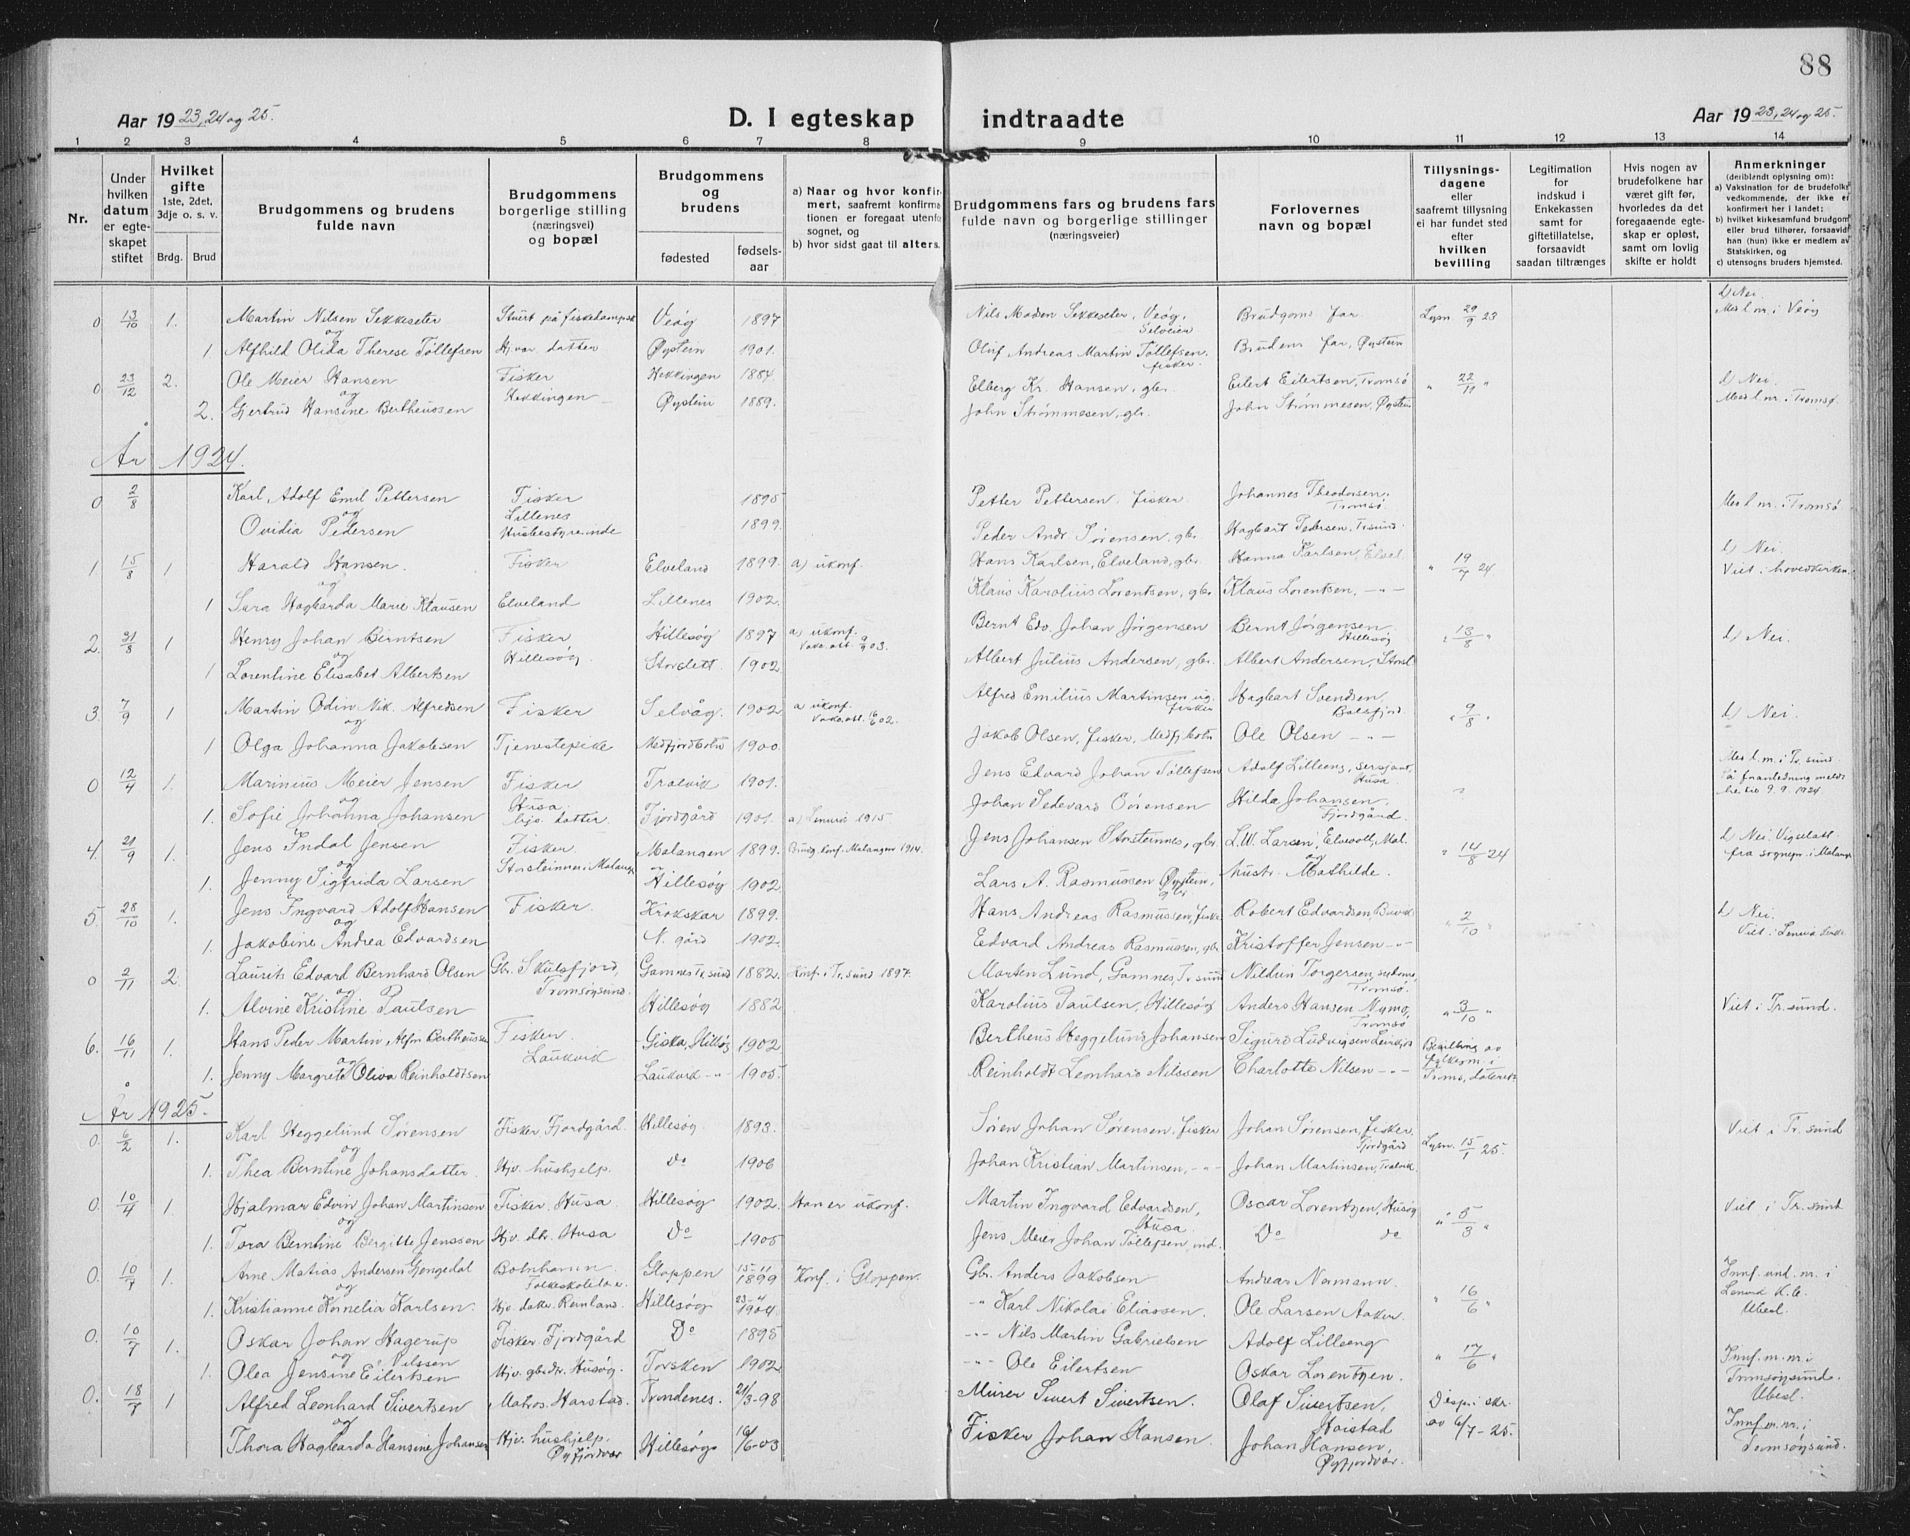 88
Aar 1923, 24 og 25.
D. I egteskap indtraadte
Aar 1923, 24 og 25.
1 2 3 4 5 6 7 8 9 10 11 12 13 14
Nr.
Under hvilken datum er egteskapet stiftet
Hvilket gifte 1ste, 2det, 3dje o. s. v.
Brdg. Brud
Brudgommens og brudens fulde navn
Brudgommens borgerlige stilling (næringsvei) og bopæl
Brudgommens og brudens
fødested
fødselsaar
a) Naar og hvor konfirmert, saafremt konfirmationen er foregaat utenfor sognet, og
b) hvor sidst gaat til alters.
Brudgommens fars og brudens fars fulde navn og borgerlige stillinger (næringsveier)
Forlovernes navn og bopæl
Tillysningsdagene eller saafremt tillysning ei har fundet sted efter hvilken bevilling
Legitimation for indskud i Enkekassen samt for giftetillatelse, forsaavidt saadan tiltrænges
Hvis nogen av brudefolkene har været gift før, hvorledes da det foregaaende egteskap er opløst, samt om lovlig skifte er holdt
Anmerkninger (deriblendt oplysning om):
a) Vaksination for de brudefolks vedkommende, der ikke er konfirmert her i landet;
b) hvilket kirkesamfund brudgom eller brud tilhører, forsaavidt han (hun) ikke er medlem av Statskirken, og
c) utensogns bruders hjemsted.
0 13/10 1. Martin Nilsen Sekkeseter Veøy 1897 Nils Madsen Sekkeseter, Veøy, Selveier Brudgoms far Lysn. 29/9 23 d) Nei. Med l. nr. i Veøy
og
1 Alfhild Olida Therese Tollefsen Hj.vær. datter Øystein 1901. Oluf Andreas Martin Tollefsen, fisker Brudens far, Øystein
0 23/12 2. Ole Meier Hansen Fisker Hekkingen 1884 Elberg Kr. Hansen, gbr. Eilert Eilertsen, Tromsø " 22/11 " d) Nei.
og
2. Gjertrud Hansine Bertheussen Hekkingen Øystein 1889. John Strømmesen, gbr. John Strømmesen, Øystein Med l. nr. i Tromsø.
År 1924.
0 2/8 Karl Adolf Emil Pettersen Fisker 1895 Petter Pettersen, fisker Johannes Theodorsen, Tromsø. Med l. nr. i Tromsø
og Lillenes
Ovidia Pedersen Husbestyrerinde 1899. Peder Andr. Sørensen, gbr. Hagbart Pedersen, Tr.sund.
1. 15/8 1 Harald Hansen. Fisker Elveland 1899. a) ukonf. Hans Karlsen, Elveland, gbr. Hanna Karlsen, Elvel. " 19/7 24 d) Nei. Viet i hovedkirken.
og
1 Sara Hagbarda Marie Klausen Elveland Lillenes 1902. Klaus Karolius Lorentsen, gbr. Klaus Lorentsen, -"-
2. 31/8 1 Henry Johan Berntsen Fisker Hillesøy 1897 a) ukonf. Bernt Edv. Johan Jørgensen Bernt Jørgensen Hillesøy " 13/8 " d) Nei.
og
1 Lorentine Elisabet Albertsen Hillesøy Storslett 1902 Albert Julius Andersen, gbr. Albert Andersen, Storsl.
3. 7/9 1 Martin Odin Nik. Alfredsen Fisker Selvåg. 1902. a ukonf. Alfred Emilius Martinsen fisker Hagbart Svendsen Balsfjord. " 9/8 " d) Nei.
og
1 Olga Johanna Jakobsen Tjenestepike Medfjordbotn 1900. Jakob Olsen, fisker, Medfj.botn Ole Olsen -"-
0 12/4 1. Marinius Meier Jensen Fisker Tralvik 1901. Jens Edvard Johan Tollefsen Adolf Lilleeng, sersjant, Husa Med l. nr. i Tr.sund.
og Husa.
1. Sofie Johanna Johansen hjv. datter Fjordgård 1901. a) Lenvik 1915 Johan Sedevars Sørensen Hilda Johansen, Fjordgård.
4. 21/9 1. Jens Indal Jensen Fisker Malangen 1899. Brudg. konf. Malangen 1914. Jens Johansen Storsteinnes, gbr. L.W. Larsen, Elvevoll, Mal. " 14/8 24 d) Nei. Vigselatt. fra sognepr. i Malangen
og Storsteinnes i Malangen og
1. Jenny Sigfrida Larsen Hillesøy 1902 Lars A. Rasmussen Øystein, gbr. hustr. Mathilde.
5. 28/10 1. Jens Ingvard Adolf Hansen Fisker Krokskar 1899. Hans Andreas Rasmussen, fisker Robert Edvardsen, Buvik " 2/10 " d) Nei.
og
1. Jakobine Andrea Edvardsen N. gård 1902. Edvard Andreas Rasmussen, gbr. Kristoffer Jensen -"- Viet i Lenvik kirke
0 2/11 2. Laurits Edvard Bernhard Olsen Gbr. Skulsfjord, Gamnes Tr.sund 1882. Konf. i Tr.sund 1897. Marten Lund, Gamnes, Tr.sund Tromsø.
og Tromsøysund.
1. Alvine Kristine Paulsen Hillesøy 1882 Karolius Paulsen, Hillesøy Anders Hansen Nymo, Tromsø " 3/10 " Viet i Tr.sund.
6. 16/11 1. Hans Peder Martin Alfin Bertheussen Fisker Giska, Hillesøy 1902 Bertheus Heggelund Johansen Sigurd Ludvigsen Bevilling av
og Laukvik fylkesm. i
1. Jenny Margrete Oliva Reinholdtsen Laukvik -"- 1905. Reinholdt Leonhard Nilssen Charlotte Nilsen -"-
År 1925.
0. 6/2 1. Karl Heggelund Sørensen Fisker, Fjordgård. Hillesøy 1893. Søren Johan Sørensen, fisker Johan Sørensen, fisker, Fjordgård Lysn. 15/1 25. Viet i Tr.sund
og
1. Thea Berntine Johansdatter Hjv. hushjelp. do 1906 Johan Kristian Martinsen, -"- Johan Martinsen, Tralvik.
0. 10/4 1. Hjalmar Edvin Johan Martinsen Fisker, Husa. Hillesøy 1902. Han er ukonf. Martin Ingvard Edvardsen, Husa. Oscar Lorentzen, Husøy " 5/3 " Viet i Tr.sund
og
1. Tora Berntine Bergitte Jenssen Hjv. dtr. Husa Do 1905 Jens Meier Johan Tollefsen, ind. Do do
0. 10/7 1. Arne Matias Andersen Gjengedal Gloppen 15-11 1899 Konf. i Gloppen. Gbr. Anders Jakobsen Andreas Normann. " 16/6 " Innf. und. nr. i
og Folkeskolelær. Lenvik K.b.
1. Kristianne Kornelia Karlsen. Hjv. datr. Reinland. Hillesøy 23-4 1904. -"- Karl Nikolai Eliassen. Ole Larsen Aaker. Ubesl.
0. 10/7 1. Oskar Johan Hagerup Nilssen Fisker. Fjordgård Do 1895 -"- Nils Martin Gabrielsen Adolf Lilleeng " 17/6 " Innf. m. nr. i
og
1. Olea Jensine Eilertsen Hjv. gbrdr. Husøy. Torsken 1902. -"- Ole Eilertsen Oskar Lorentzen. Tromsøysund. Ubesl.
0. 18/7 1 Alfred Leonhard Sivertsen Matros. Harstad. Trondenes. 21/3-98 Murer Sivert Sivertsen. Olaf Sivertsen, Harstad av 6/7-25. Innf. m. nr. i
og
Thora Hagbarda Hansine Johansen Hjv. hushjelp. Øyfjordvær Hillesøy 16/6-03 Fisker Johan Hansen. Johan Hansen, Øyfjordvær. Tromsøysund.